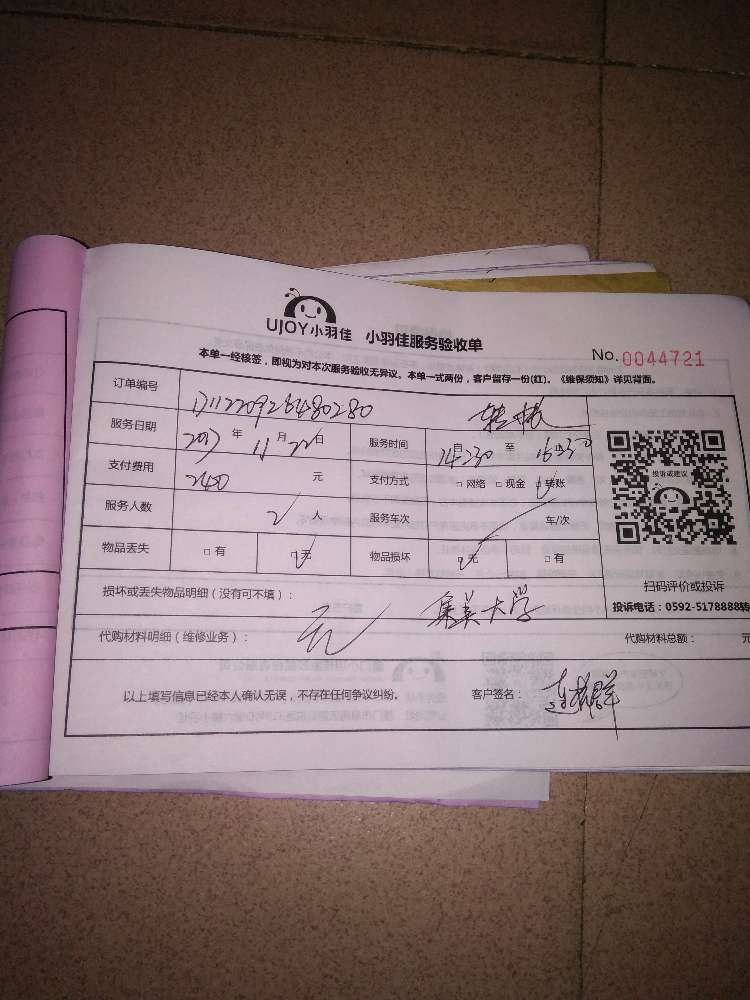 UJOY小羽佳 小羽佳服务验收单
No. 0044721
本单一经核签，即视为对本次服务验收无异议。本单一式两份，客户留存一份(红)。《维保须知》详见背面。
订单编号 D11220926480280 转账
服务日期 2017 年 11 月 22 日 服务时间 自 14:30 至 16:30
支付费用 2400 元 支付方式 □网络 □现金 □转账
服务人数 2 人 服务车次 车/次
物品丢失 □有 □无 物品损坏 □无 □有
投诉或建议
扫码评价或投诉
投诉电话：0592-5178888转
损坏或丢失物品明细（没有可不填）：
无 集美大学
代购材料明细（维修业务）： 代购材料总额： 元
以上填写信息已经本人确认无误，不存在任何争议纠纷。 客户签名：